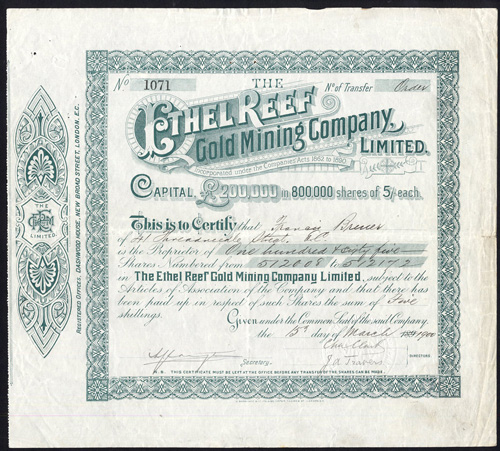 No 1071 THE No of Transfer Order
ETHEL REEF
Gold Mining Company,
LIMITED.
Incorporated under the Companies' Acts, 1862 to 1890.
CAPITAL, £200,000 in 800,000 shares of 5/- each.
This is to Certify that
of Street,
is the Proprietor of One hundred & forty five
Shares Numbered 512068 512212 in
The Ethel Reef Gold Mining Company Limited, subject to the
Articles of Association of the Company and that there has
been paid up in respect of such Shares the sum of Five
shillings.
Given under the Common Seal of the said Company,
the 15 day of March 1900
J.A. Travers
DIRECTORS
Secretary.
N.B. THIS CERTIFICATE MUST BE LEFT AT THE OFFICE BEFORE ANY TRANSFER OF THE SHARES CAN BE MADE
THE
LIMITED.
REGISTERED OFFICES, DASHWOOD HOUSE, NEW BROAD STREET, LONDON, E.C.